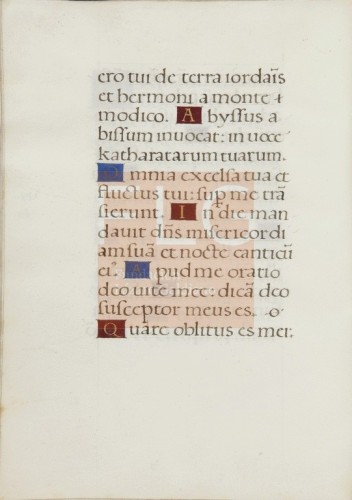 ero tui de terra iordaīs
et hermoni a monte
modico. A byssus a
bissum inuocat: in uoce
katharatarum tuarum.
O mnia excelsa tua et
fluctus tui: sup me trā
sierunt. I n die man
dauit dn̄s misericordi
am suā et nocte canticū
ei⁹. A pud me oratio
deo uite mee: dicā deo
susceptor meus es. o
Q uare oblitus es mei: